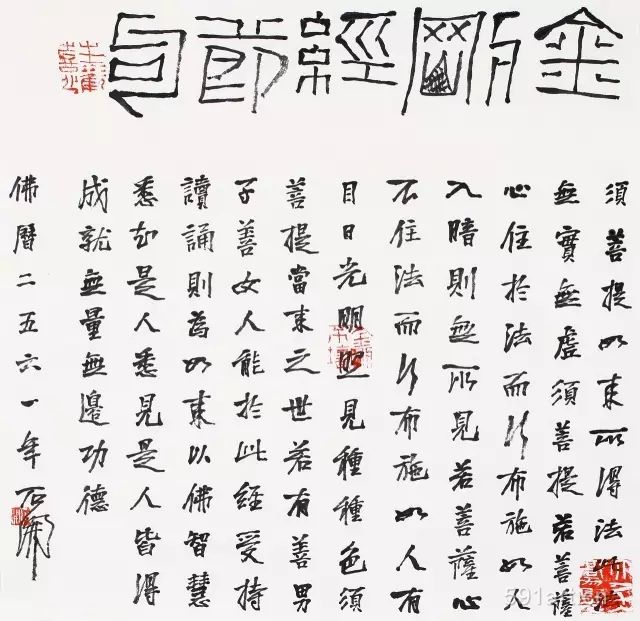 金剛經節句
須菩提如來所得法此法
無實無虛須菩提若菩薩
心住於法而行布施如人
入暗則無所見若菩薩心
不住法而行布施如人有
目日光明照見種種色須
菩提當來之世若有善男
子善女人能於此經受持
讀誦則為如來以佛智慧
悉知是人悉見是人皆得
成就無量無邊功德
佛曆二五六一年 石開